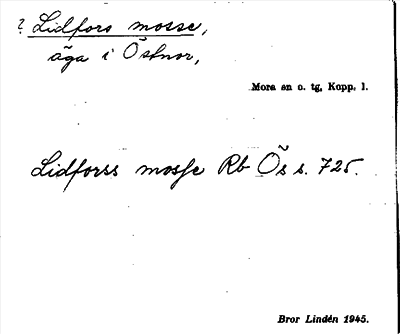 ? Lidfors mosse,
äga i Östnor,
Mora sn o. tg, Kopp. l.
Lidforss mosse Rb Ös s. 725.
Bror Lindén 1945.